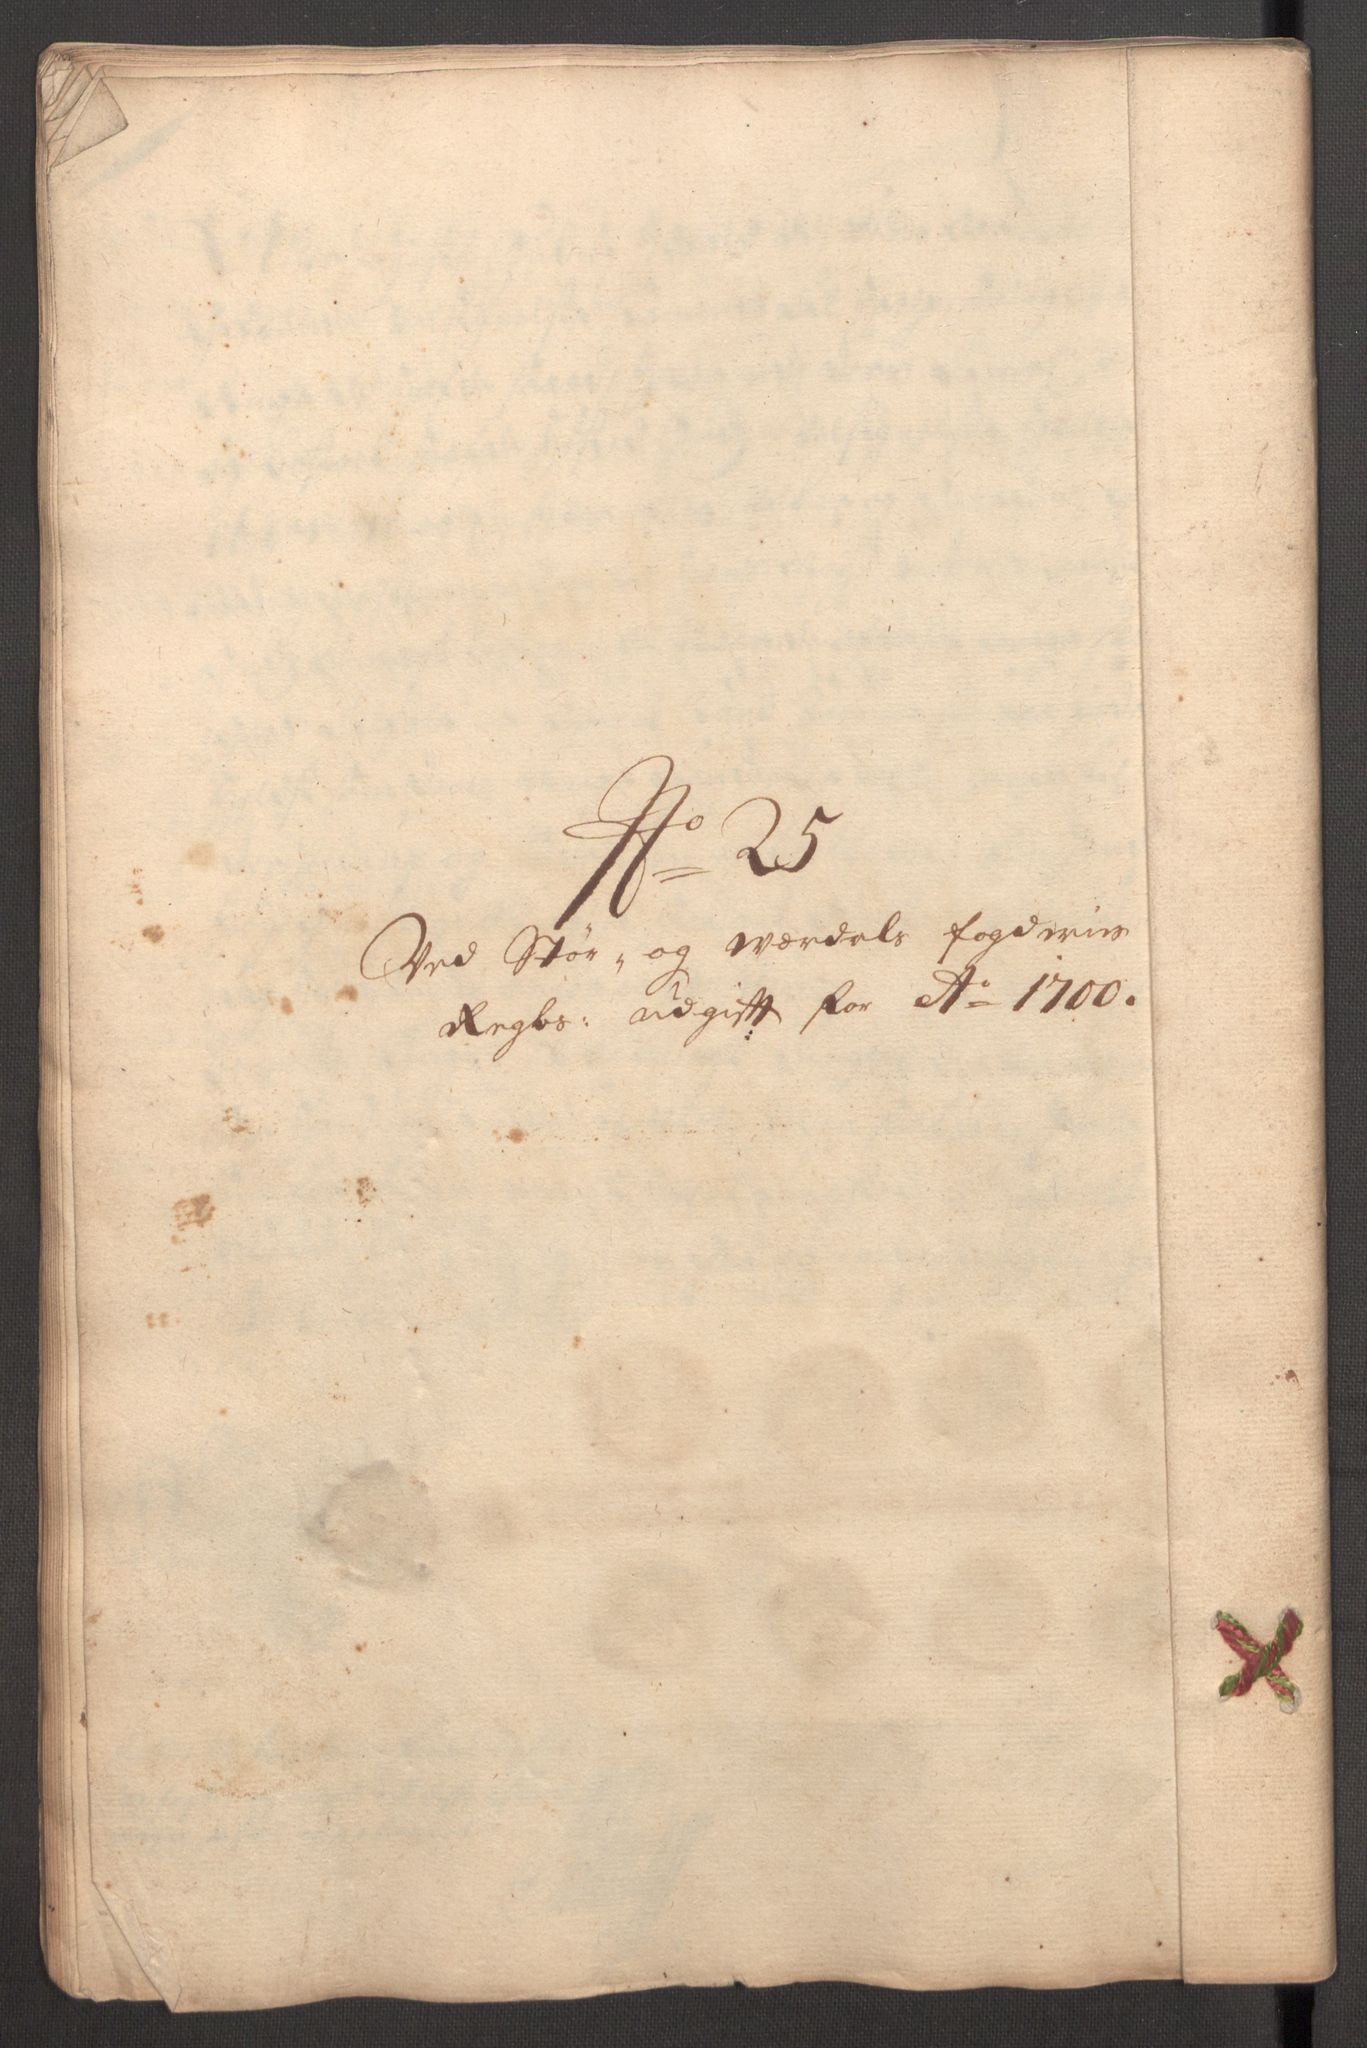 No 25
Ved Stør- og Værdals fogderies
Regbs: udgifft for Ao 1700.